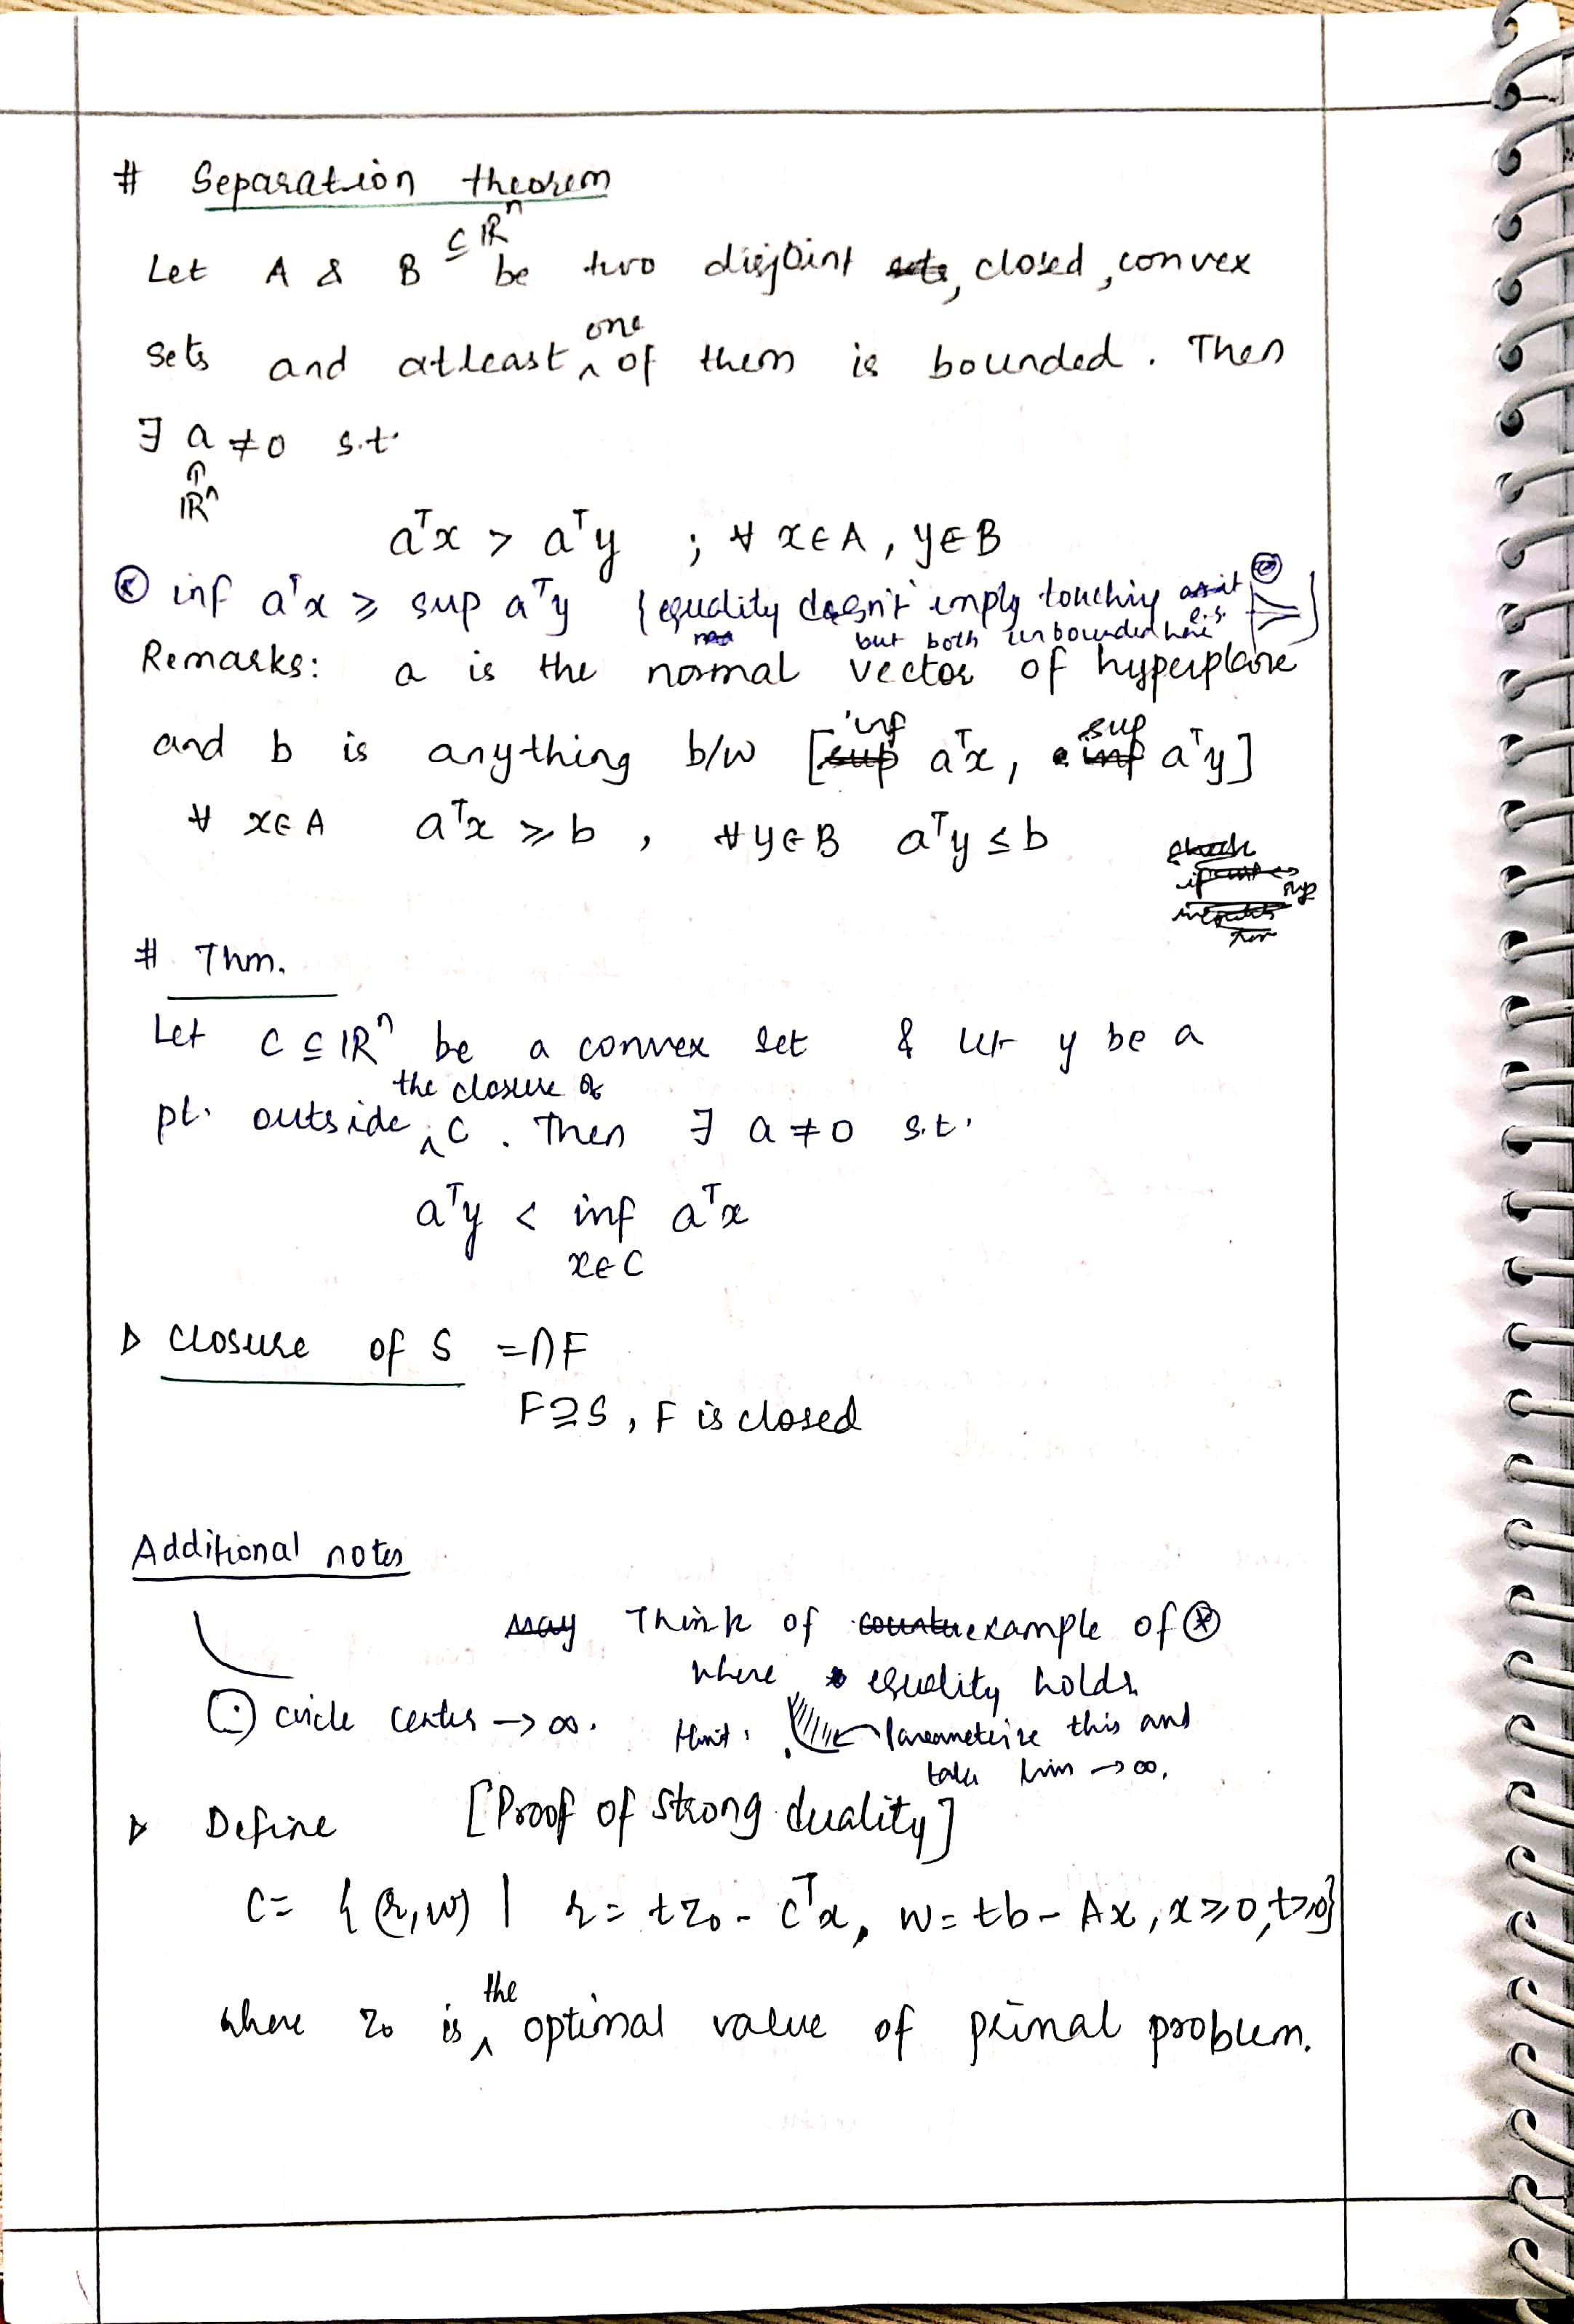 # Separation theorem
Let A & B ⊆ ℝⁿ be two disjoint sets, closed, convex
sets and atleast one of them is bounded. Then
∃ a ≠ 0 s.t.
ℝⁿ
aᵀx > aᵀy ; ∀ x∈A, y∈B
⊛ inf aᵀx ≥ sup aᵀy {equality doesn't imply touching
but both unbounded here
Remarks: a is the normal vector of hyperplane
and b is anything b/w [inf aᵀx, sup aᵀy]
∀ x∈A aᵀx ≥ b , ∀y∈B aᵀy ≤ b
# Thm.
Let C ⊆ ℝⁿ be a convex set & let y be a
pt. outside the closure of C. Then ∃ a ≠ 0 s.t.
aᵀy < inf aᵀx
x∈C
▷ Closure of S = ∩F
F⊇S, F is closed
Additional notes
may Think of counterexample of ⊛
where equality holds
circle center → ∞. Hint: Parameterize this and
take lim → ∞.
▷ Define [Proof of strong duality]
C = { (r,w) | r = tz₀ - cᵀx, w = tb - Ax, x ≥ 0, t ≥ 0}
where z₀ is the optimal value of primal problem.